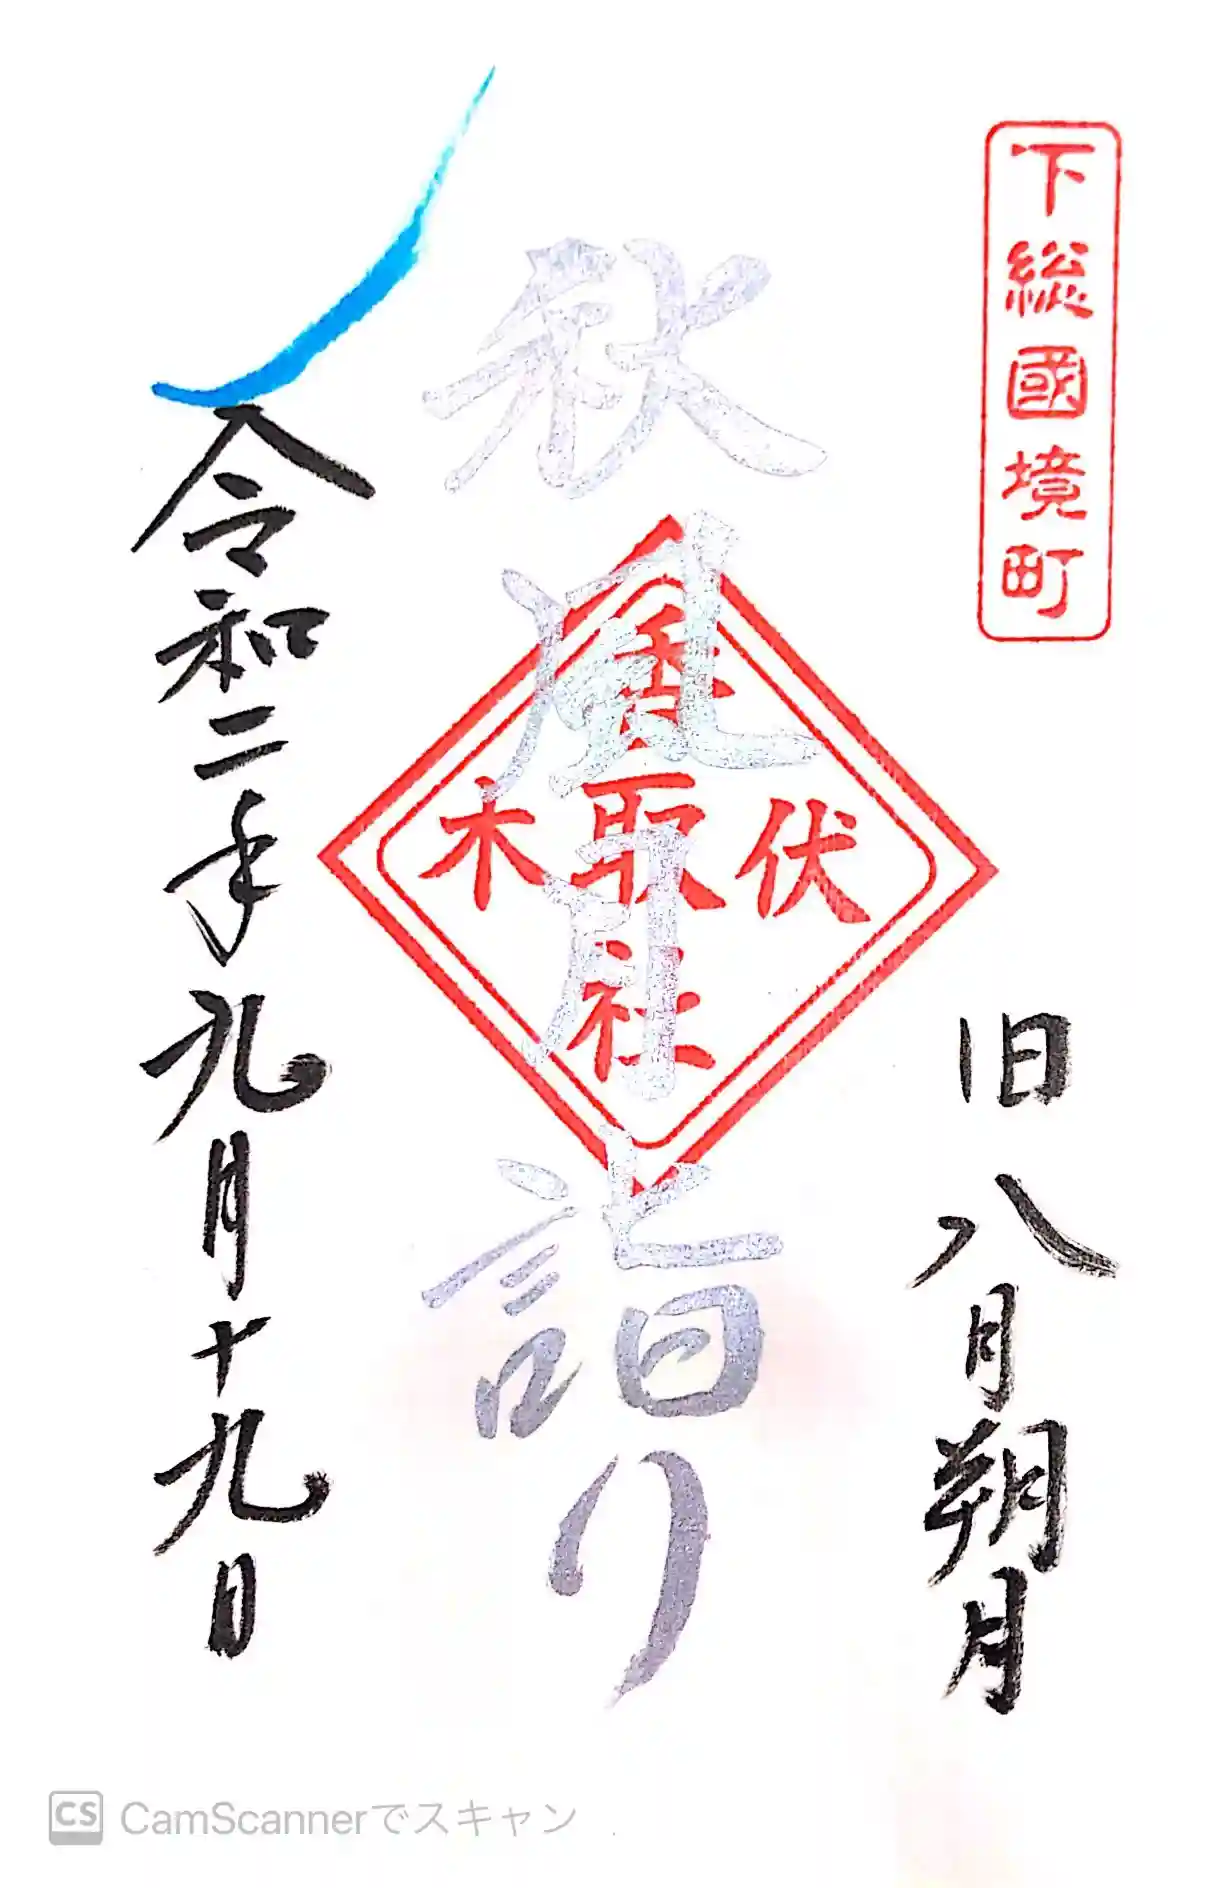 下総國境町
旧八月朔月
秋風月詣り
伏木
香取社
令和二年九月十九日
CS CamScannerでスキャン